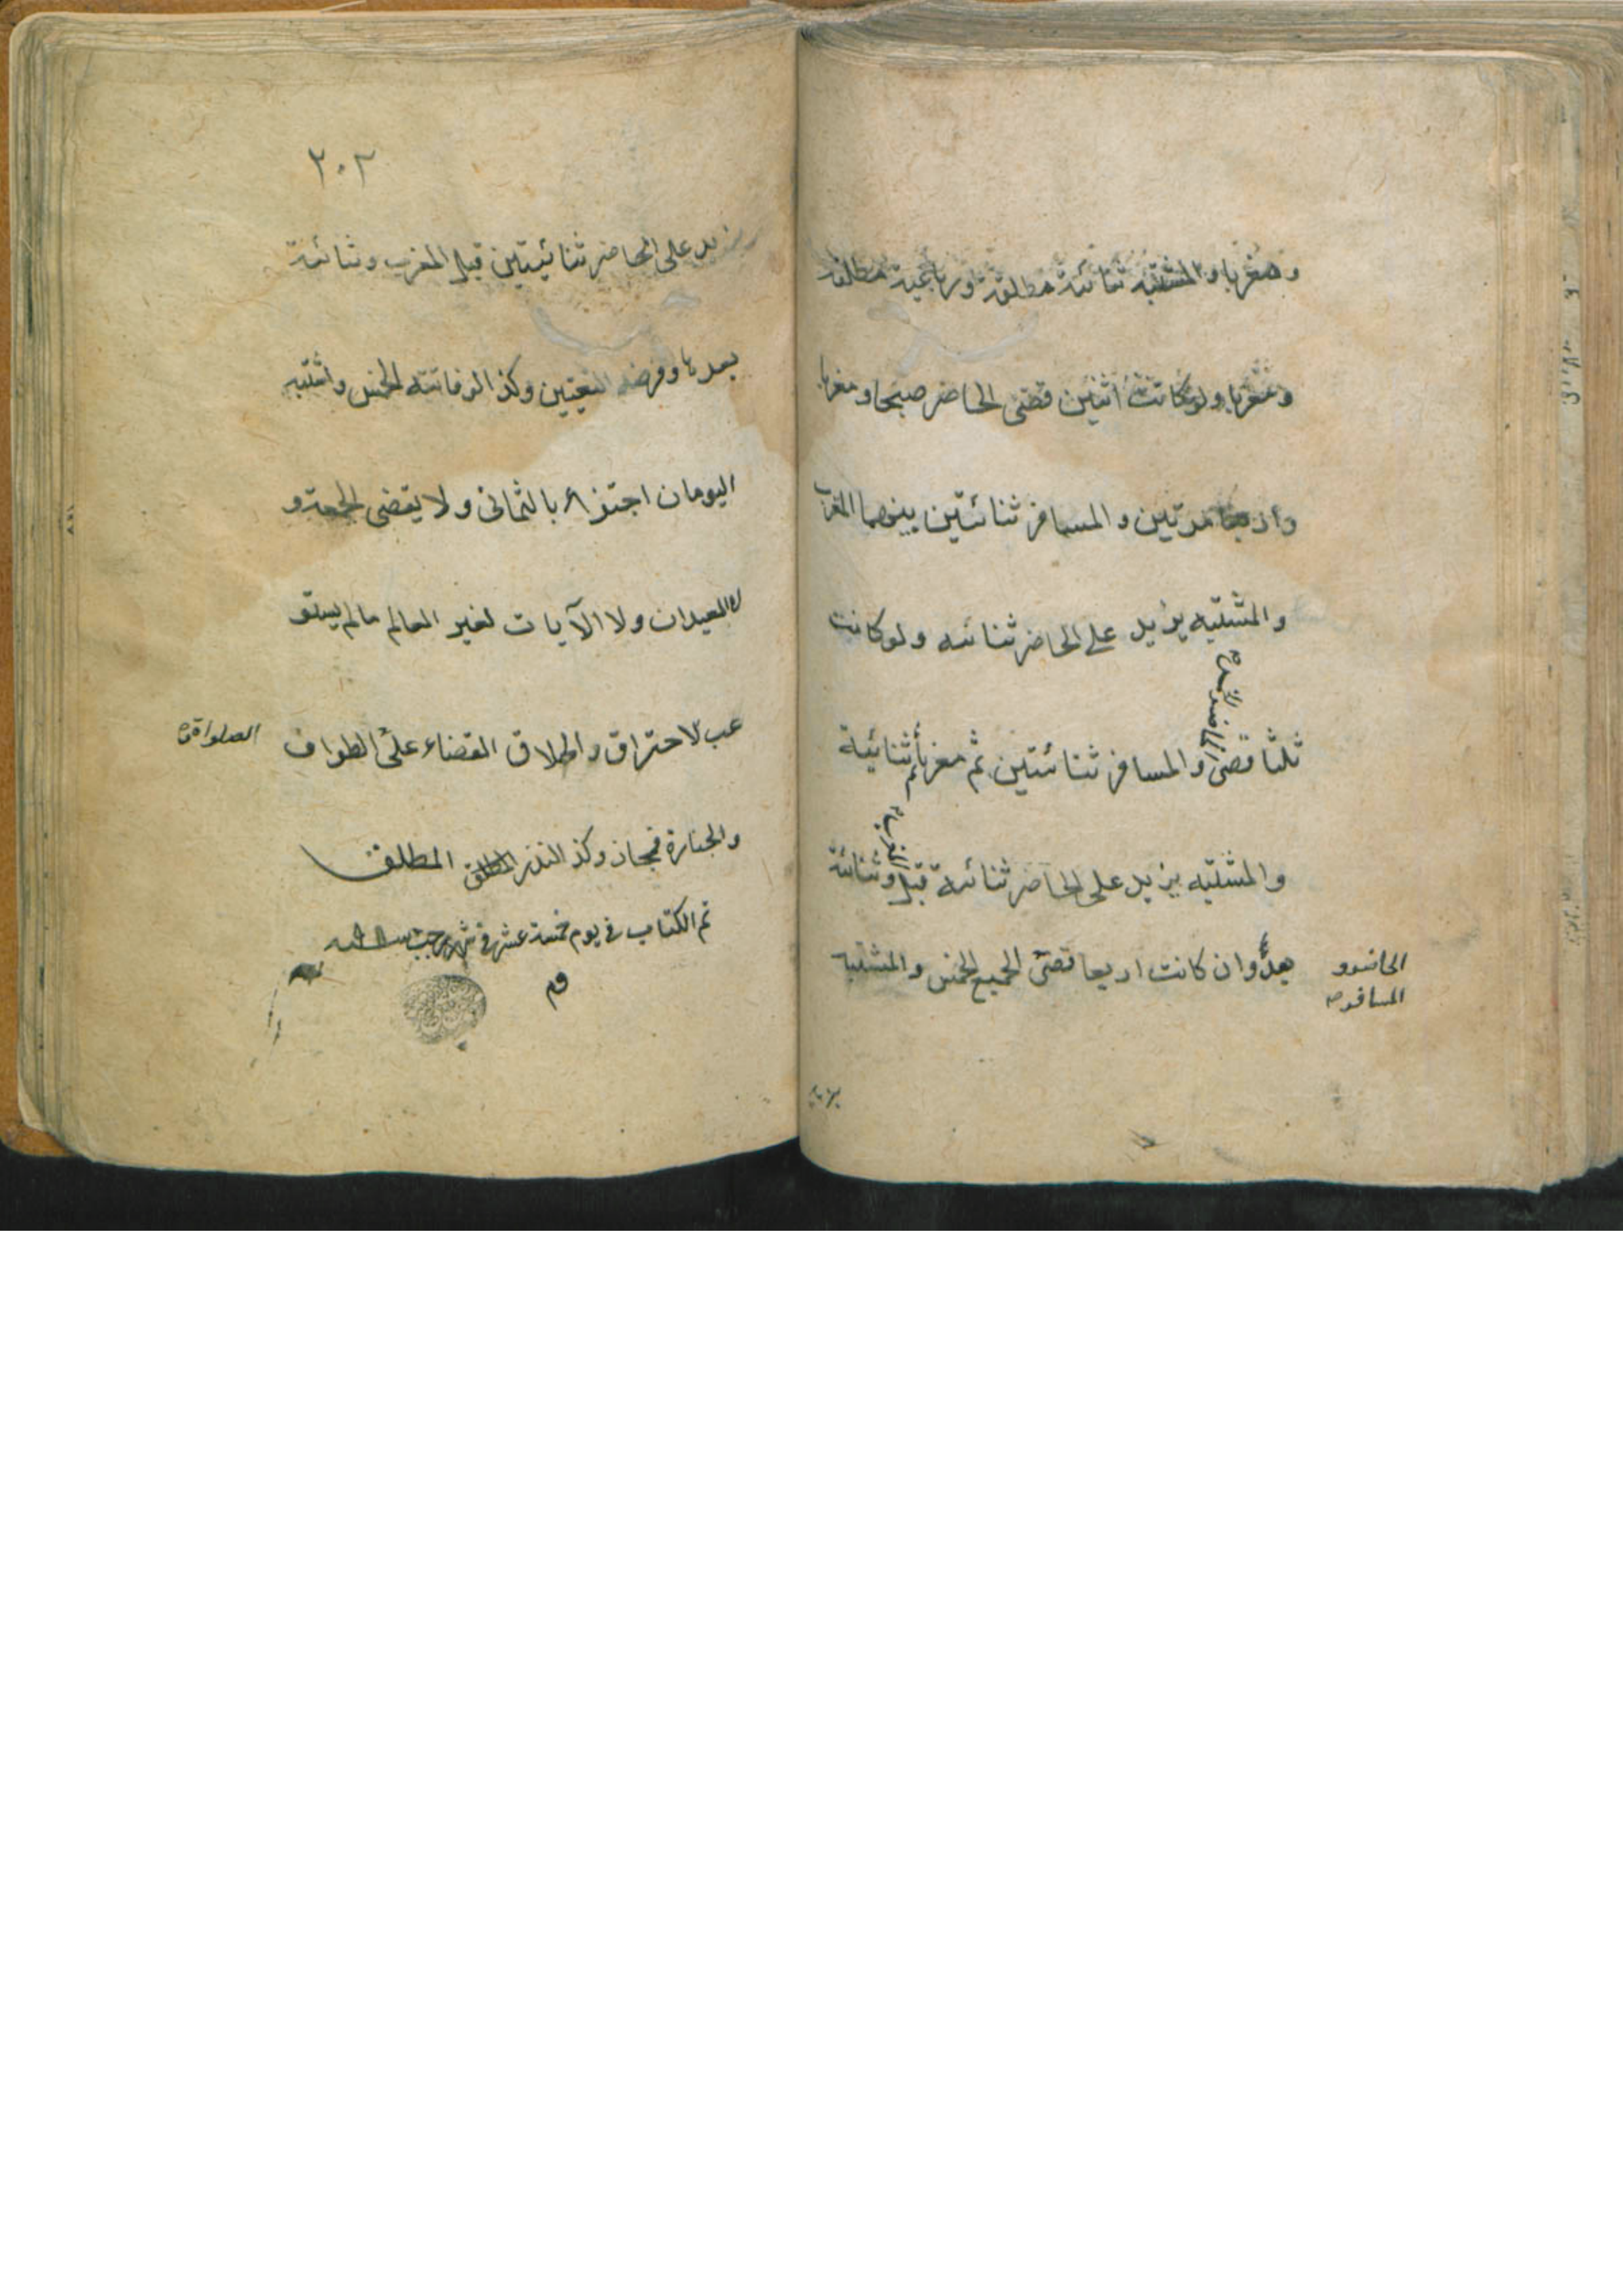 ومغربا والمشتبه ثنائية مطلقة ورباعية مطلقة
ومغربا ولو كانت اثنين قضى الحاضر صبحا ومغربا
واربعا مرتين والمسافر ثنائتين بينهما المغرب
والمشتبه يزيد على الحاضر ثنائيه ولو كانت
ثلثا قضى الحاضر الخمس والمسافر ثنائتين ثم مغربا ثم ثنائية
والمشتبه يزيد على الحاضر ثنائية قبل المغرب وثنائية
بعد وان كانت اربعا قضى الجميع الخمس والمشتبه
الحاضر و
المسافر
٢٠٢
يزيد على الحاضر ثنائيتين قبل المغرب وثنائية
بعدها وفرضه التعيين وكذا لو فاتته الخمس واشتبه
اليومان اجتزاء بالثماني ولا يقضى الجمعة و
لا العيدان ولا الآيات لغير العالم مالم يستو
عب الاحتراق واطلاق القضاء على الطواف
الصلوات
والجنازة مجاز وكذا النذر المطلق المطلق
تم الكتاب في يوم خمسة عشر في شهر رجب